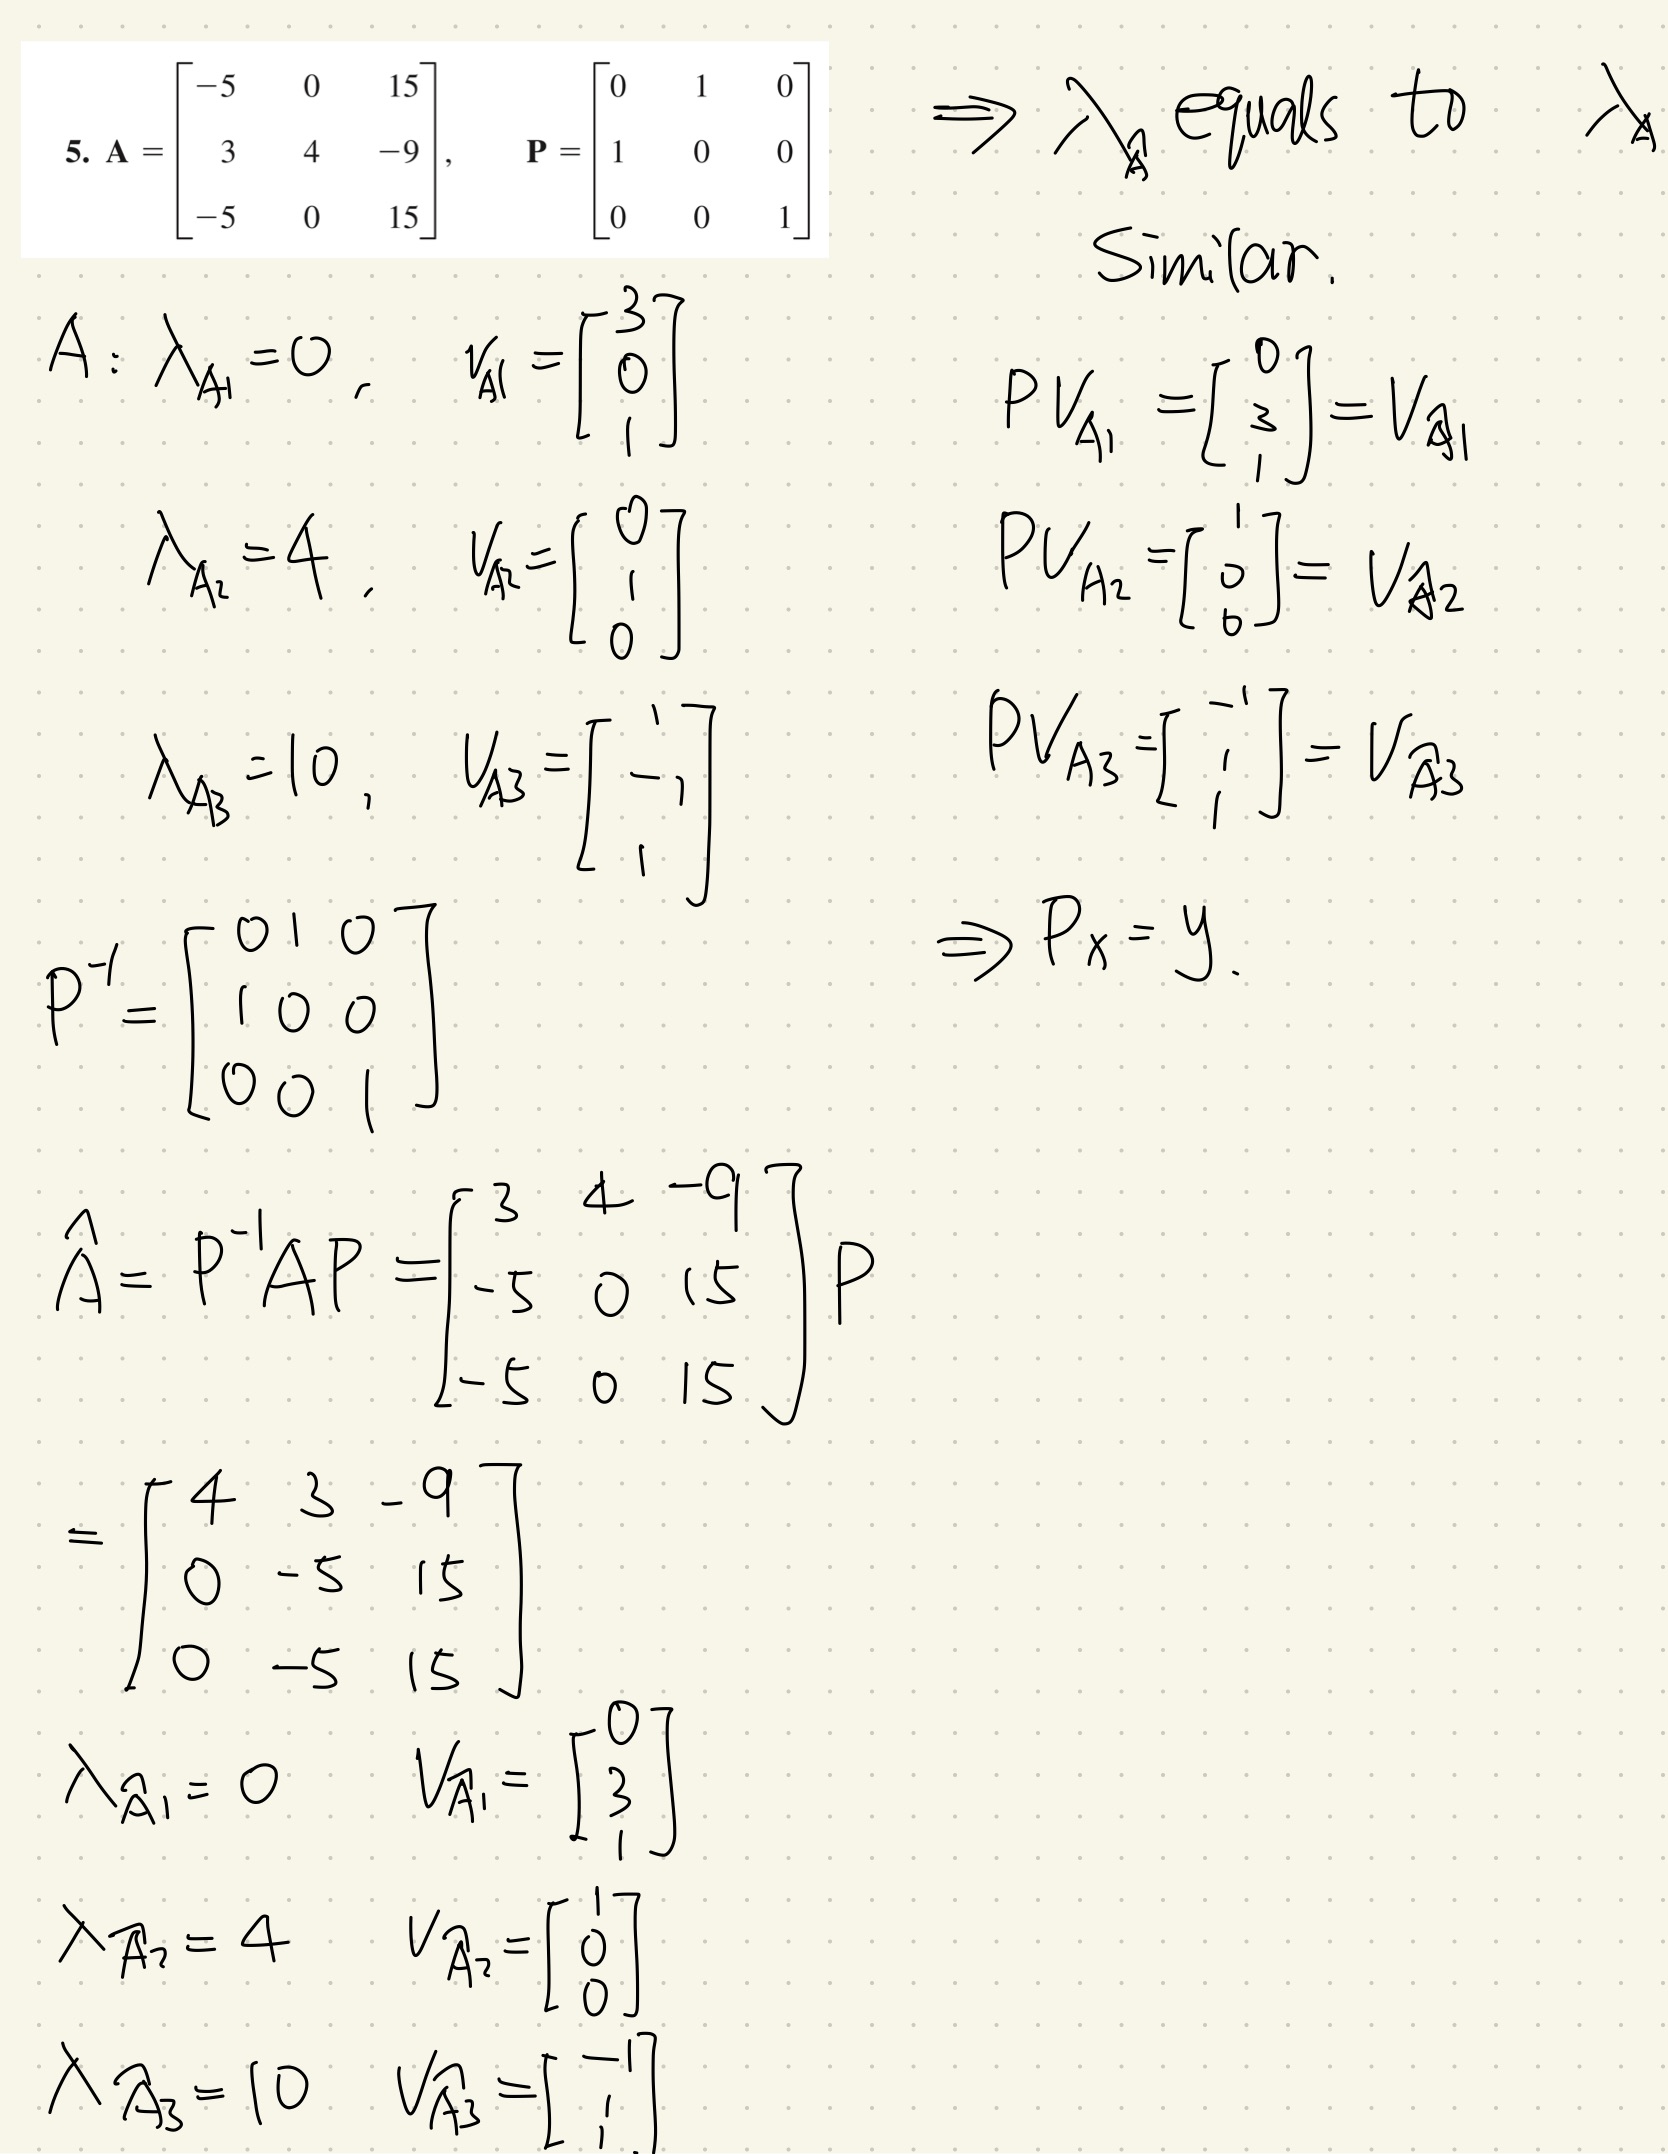 5. A = [−5 0 15; 3 4 −9; −5 0 15], P = [0 1 0; 1 0 0; 0 0 1]
A: λ_A1 = 0, v_A1 = [3; 0; 1]
λ_A2 = 4, v_A2 = [0; 1; 0]
λ_A3 = 10, v_A3 = [1; −1; 1]
P⁻¹ = [0 1 0; 1 0 0; 0 0 1]
Â = P⁻¹AP = [3 4 −9; −5 0 15; −5 0 15] P
= [4 3 −9; 0 −5 15; 0 −5 15]
λ_Â1 = 0 v_Â1 = [0; 3; 1]
λ_Â2 = 4 v_Â2 = [1; 0; 0]
λ_Â3 = 10 v_Â3 = [−1; 1; 1]
⇒ λ_Â equals to λ_A
Similar.
PV_A1 = [0; 3; 1] = V_Â1
PV_A2 = [1; 0; 0] = V_Â2
PV_A3 = [−1; 1; 1] = V_Â3
⇒ Px = y.